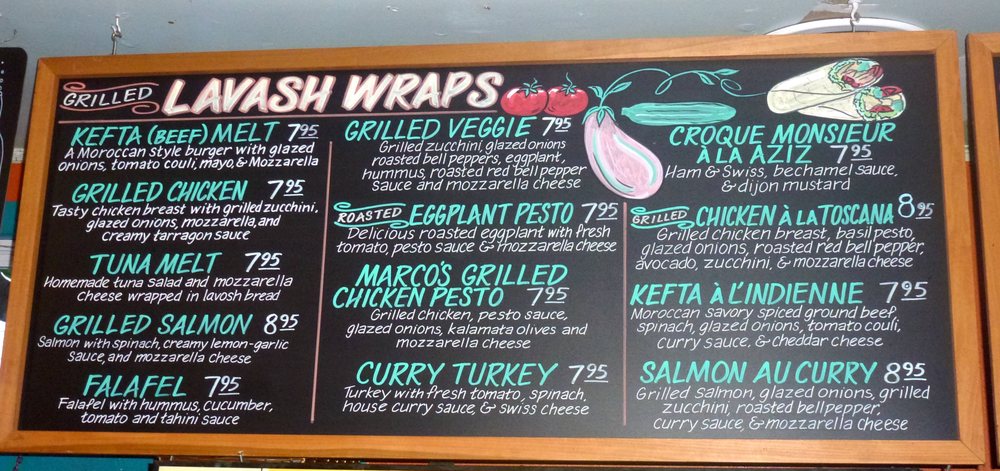 GRILLED LAVASH WRAPS
KEFTA (BEEF) MELT 7.95
A Moroccan Style burger with glazed
onions, tomato couli, mayo, & Mozzarella
GRILLED CHICKEN 7.95
Tasty chicken breast with grilled zucchini,
glazed onions, mozzarella, and
creamy tarragon sauce
TUNA MELT 7.95
Homemade tuna salad and mozzarella
cheese wrapped in lavosh bread
GRILLED SALMON 8.95
Salmon with spinach, creamy lemon-garlic
Sauce, and mozzarella cheese
FALAFEL 7.95
Falafel with hummus, cucumber,
tomato and tahini sauce
GRILLED VEGGIE 7.95
Grilled zucchini, glazed onions
roasted bell peppers, eggplant,
hummus, roasted red bell pepper
sauce and mozzarella cheese
ROASTED EGGPLANT PESTO 7.95
Delicious roasted eggplant with fresh
tomato, pesto sauce & mozzarella cheese
MARCO'S GRILLED
CHICKEN PESTO 7.95
Grilled chicken, pesto sauce,
glazed onions, kalamata olives and
mozzarella cheese
CURRY TURKEY 7.95
Turkey with fresh tomato, spinach,
house curry sauce, & Swiss cheese
CROQUE MONSIEUR
À LA AZIZ 7.95
Ham & Swiss, bechamel sauce,
& dijon mustard
GRILLED CHICKEN À LA TOSCANA 8.95
Grilled chicken breast, basil pesto,
glazed onions, roasted red bell pepper,
avocado, zucchini, & mozzarella cheese
KEFTA À L'INDIENNE 7.95
Moroccan savory spiced ground beef,
spinach, glazed onions, tomato couli,
curry sauce, & cheddar cheese
SALMON AU CURRY 8.95
Grilled Salmon, glazed onions, grilled
zucchini, roasted bell pepper,
curry sauce, & mozzarella cheese